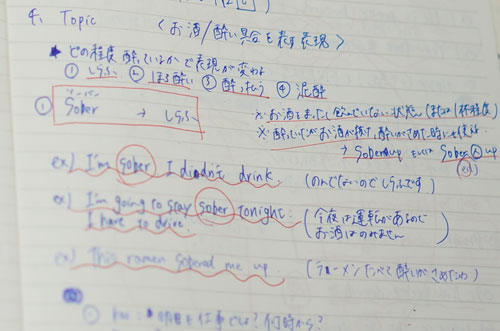 4. Topic 〈お酒/酔い具合を表す表現〉
★ どの程度酔っているかで表現が変わる
① しらふ ② ほろ酔い ③ 酔っ払う ④ 泥酔
ソーバー
① Sober → しらふ
※お酒をまったく飲んでいない状態
※酔っていたがお酒が抜け、酔いがさめた時にも使う
→ Sober up
ex) I'm sober I didn't drink. (のんでないのでしらふです)
ex) I'm going to stay sober tonight. (今夜は運転があるので
I have to drive. お酒はのみません)
ex) This ramen sobered me up. (ラーメンたべて酔いがさめたわ)